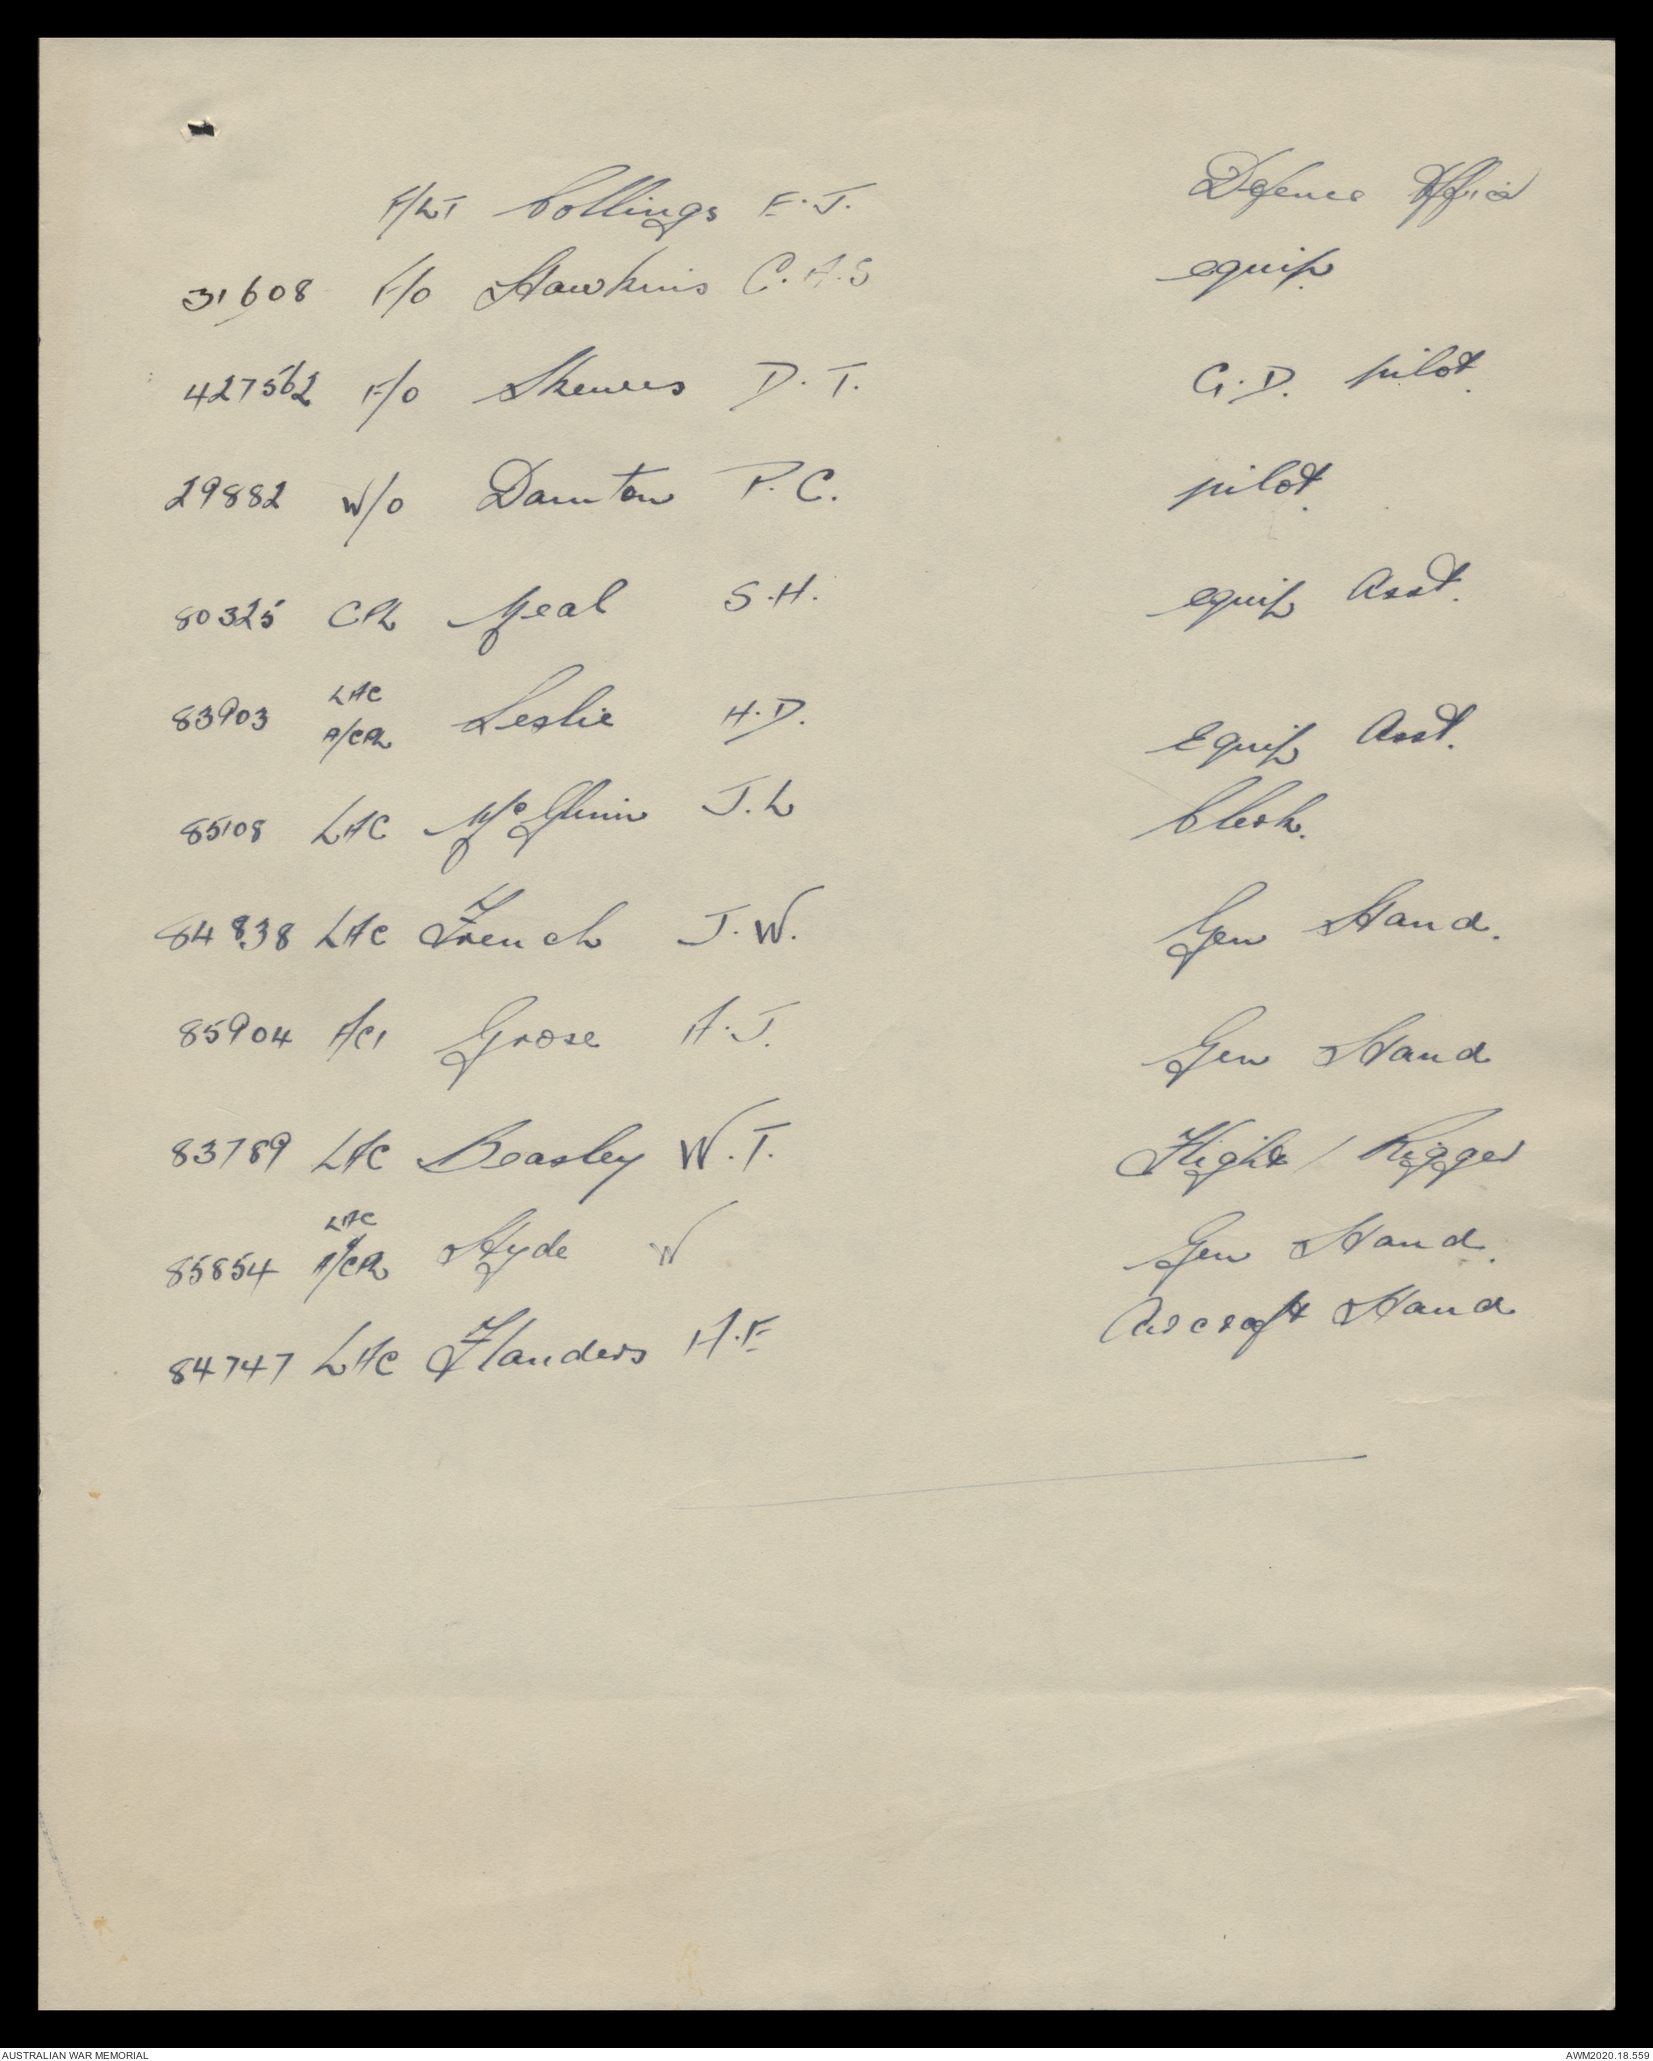 F/LT Collings E.J. Defence Office
31608 F/O Hawkins C.A.S equip.
427562 F/O Skewes D.T. G.D. pilot.
29882 W/O Darnton P.C. pilot.
80325 CPL Meal S.H. equip Asst.
LAC
83903 A/CPL Leslie H.D. Equip Asst.
85108 LAC McGlinn J.L Clerk.
84838 LAC French J.W. Gen Hand.
85904 AC1 Grose A.J. Gen Hand
83789 LAC Beasley W.T. Flight / Rigger
LAC
85854 A/CPL Hyde W Gen Hand.
84747 LAC Flanders A.E Aircraft Hand
AUSTRALIAN WAR MEMORIAL AWM2020.18.559